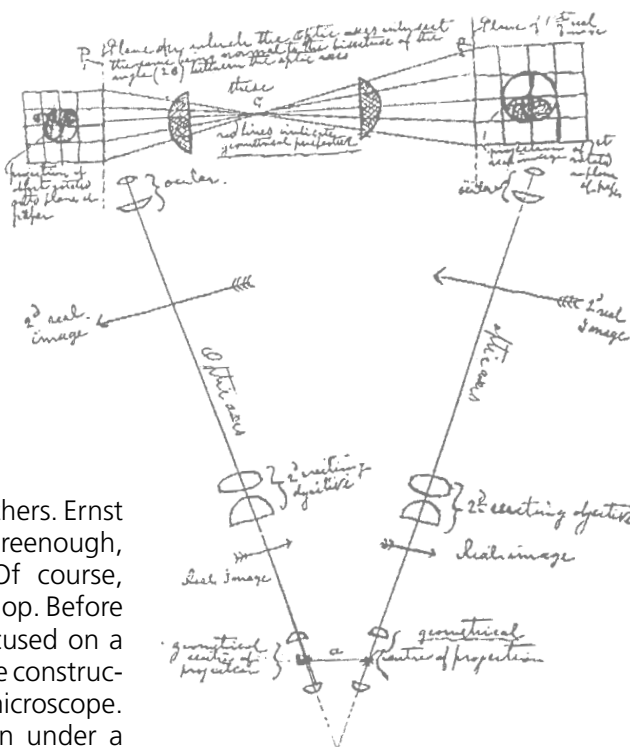 Plane of which the Optic axes intersect
the same being normal to the bisectrix of the
angle (2θ) between the optic axes
Plane of 1st real
image
these
G
red lines indicate
geometrical perspective
projection of
onto plane of
paper
projection of
real image
plane
of paper
ocular.
ocular
2d real
image
2d real
image
Optic axis
optic axis
2d erecting
objective
2d erecting objective
Real image
Real image
geometrical
centre of
projection
a
geometrical
centre of projection
thers. Ernst
reenough,
Of course,
op. Before
cused on a
e construc-
nicroscope.
n under a